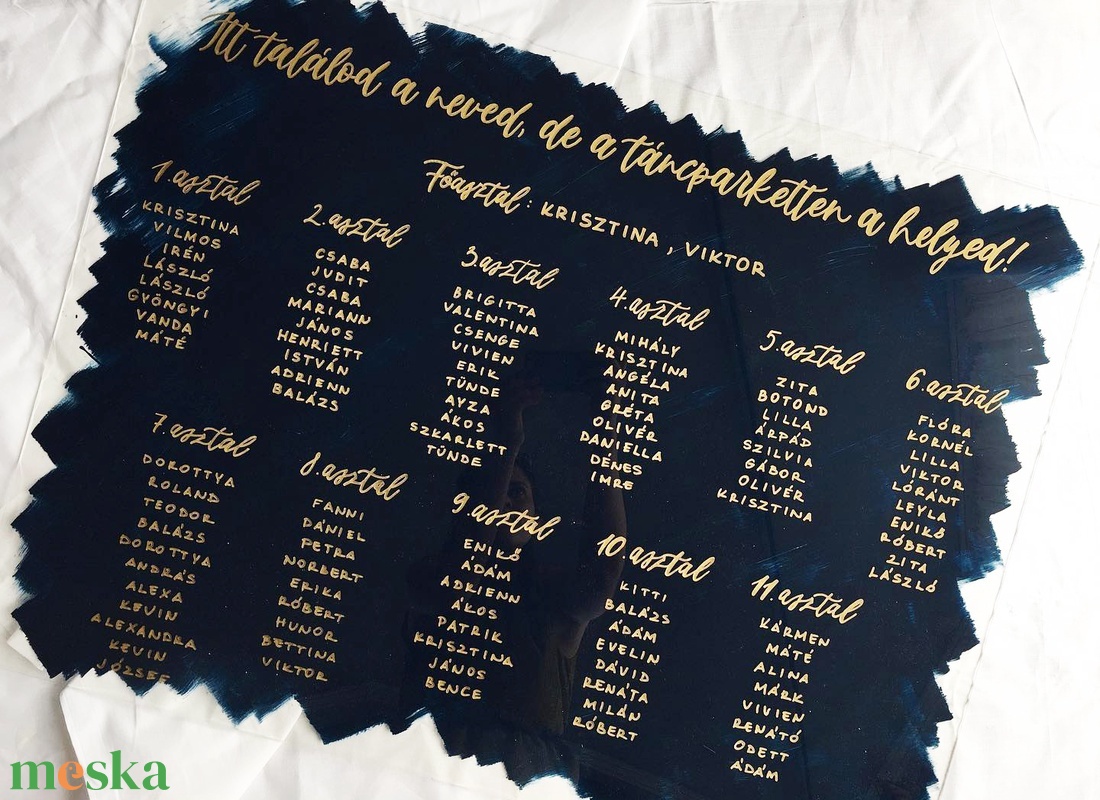 Itt találod a neved, de a táncparketten a helyed!
Főasztal: KRISZTINA, VIKTOR
1. asztal
KRISZTINA
VILMOS
IRÉN
LÁSZLÓ
LÁSZLÓ
GYÖNGYI
VANDA
MÁTÉ
2. asztal
CSABA
JUDIT
CSABA
MARIANN
JÁNOS
HENRIETT
ISTVÁN
ADRIENN
BALÁZS
3. asztal
BRIGITTA
VALENTINA
CSENGE
VIVIEN
ERIK
TÜNDE
AYZA
ÁKOS
SZKARLETT
TÜNDE
4. asztal
MIHÁLY
KRISZTINA
ANGÉLA
ANITA
GRÉTA
OLIVÉR
DANIELLA
DÉNES
IMRE
5. asztal
ZITA
BOTOND
LILLA
ÁRPÁD
SZILVIA
GÁBOR
OLIVÉR
KRISZTINA
6. asztal
FLÓRA
KORNÉL
LILLA
VIKTOR
LÓRÁNT
LEYLA
ENIKŐ
RÓBERT
ZITA
LÁSZLÓ
7. asztal
DOROTTYA
ROLAND
TEODOR
BALÁZS
DOROTTYA
ANDRÁS
ALEXA
KEVIN
ALEXANDRA
KEVIN
JÓZSEF
8. asztal
FANNI
DÁNIEL
PETRA
NORBERT
ERIKA
RÓBERT
HUNOR
BETTINA
VIKTOR
9. asztal
ENIKŐ
ÁDÁM
ADRIENN
ÁKOS
PATRIK
KRISZTINA
JÁNOS
BENCE
10. asztal
KITTI
BALÁZS
ÁDÁM
EVELIN
DÁVID
RENÁTA
MILÁN
RÓBERT
11. asztal
KÁRMEN
MÁTÉ
ALINA
MÁRK
VIVIEN
RENÁTÓ
ODETT
ÁDÁM
meska